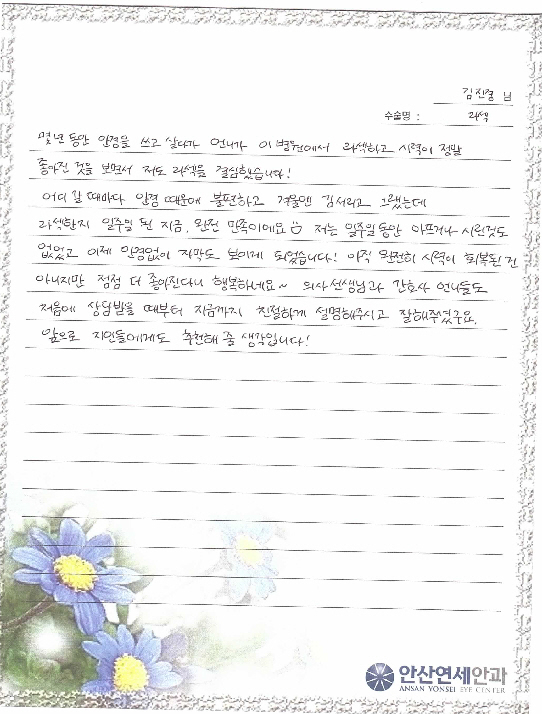 김진경 님
수술명 : 라섹
몇년동안 안경을 쓰고 살다가 언니가 이 병원에서 라섹하고 시력이 정말
좋아진 것을 보면서 저도 라섹을 결심했습니다!
어디 갈 때마다 안경 때문에 불편하고 겨울엔 김서리고 그랬는데
라섹한지 일주일 된 지금, 완전 만족이에요 저는 일주일동안 아프거나 시린것도
없었고 이제 안경없이 자막도 보이게 되었습니다! 아직 완전히 시력이 회복된 건
아니지만 점점 더 좋아진다니 행복하네요~ 의사선생님과 간호사 언니들도
처음에 상담받을 때부터 지금까지 친절하게 설명해주시고 잘해주셨구요.
앞으로 지인들에게도 추천해 줄 생각입니다!
안산연세안과
ANSAN YONSEI EYE CENTER